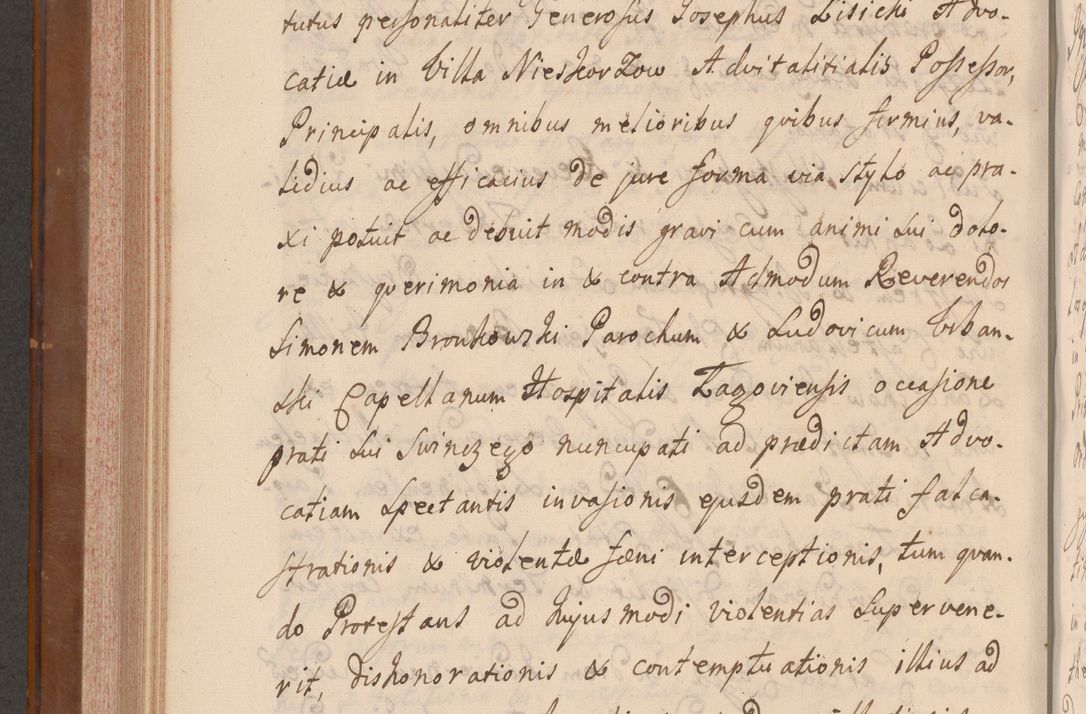 tutus personaliter Generosus Josephus Lisicki Advo-
catiæ in Villa Nieskorzow Advitalitialis Possessor,
Principalis, omnibus melioribus qvibus firmius, va-
lidius ac efficacius de jure forma via stylo ac pra-
xi potuit ac debuit modis gravi cum animi sui dolo-
re & qverimonia in & contra Admodum Reverendos
Simonem Bronkowski Parochum & Ludovicum Urban-
ski Capellanum Hospitalis Łagoviensis occasione
prati sui Swinczego nuncupati ad prædictam Advo-
catiam spectantis invasionis ejusdem prati falca-
strationis & violentæ fæni interceptionis, tum qvan-
do Protestans ad hujusmodi violentias supervene-
rit, dishonorationis & contemptuationis illius ad